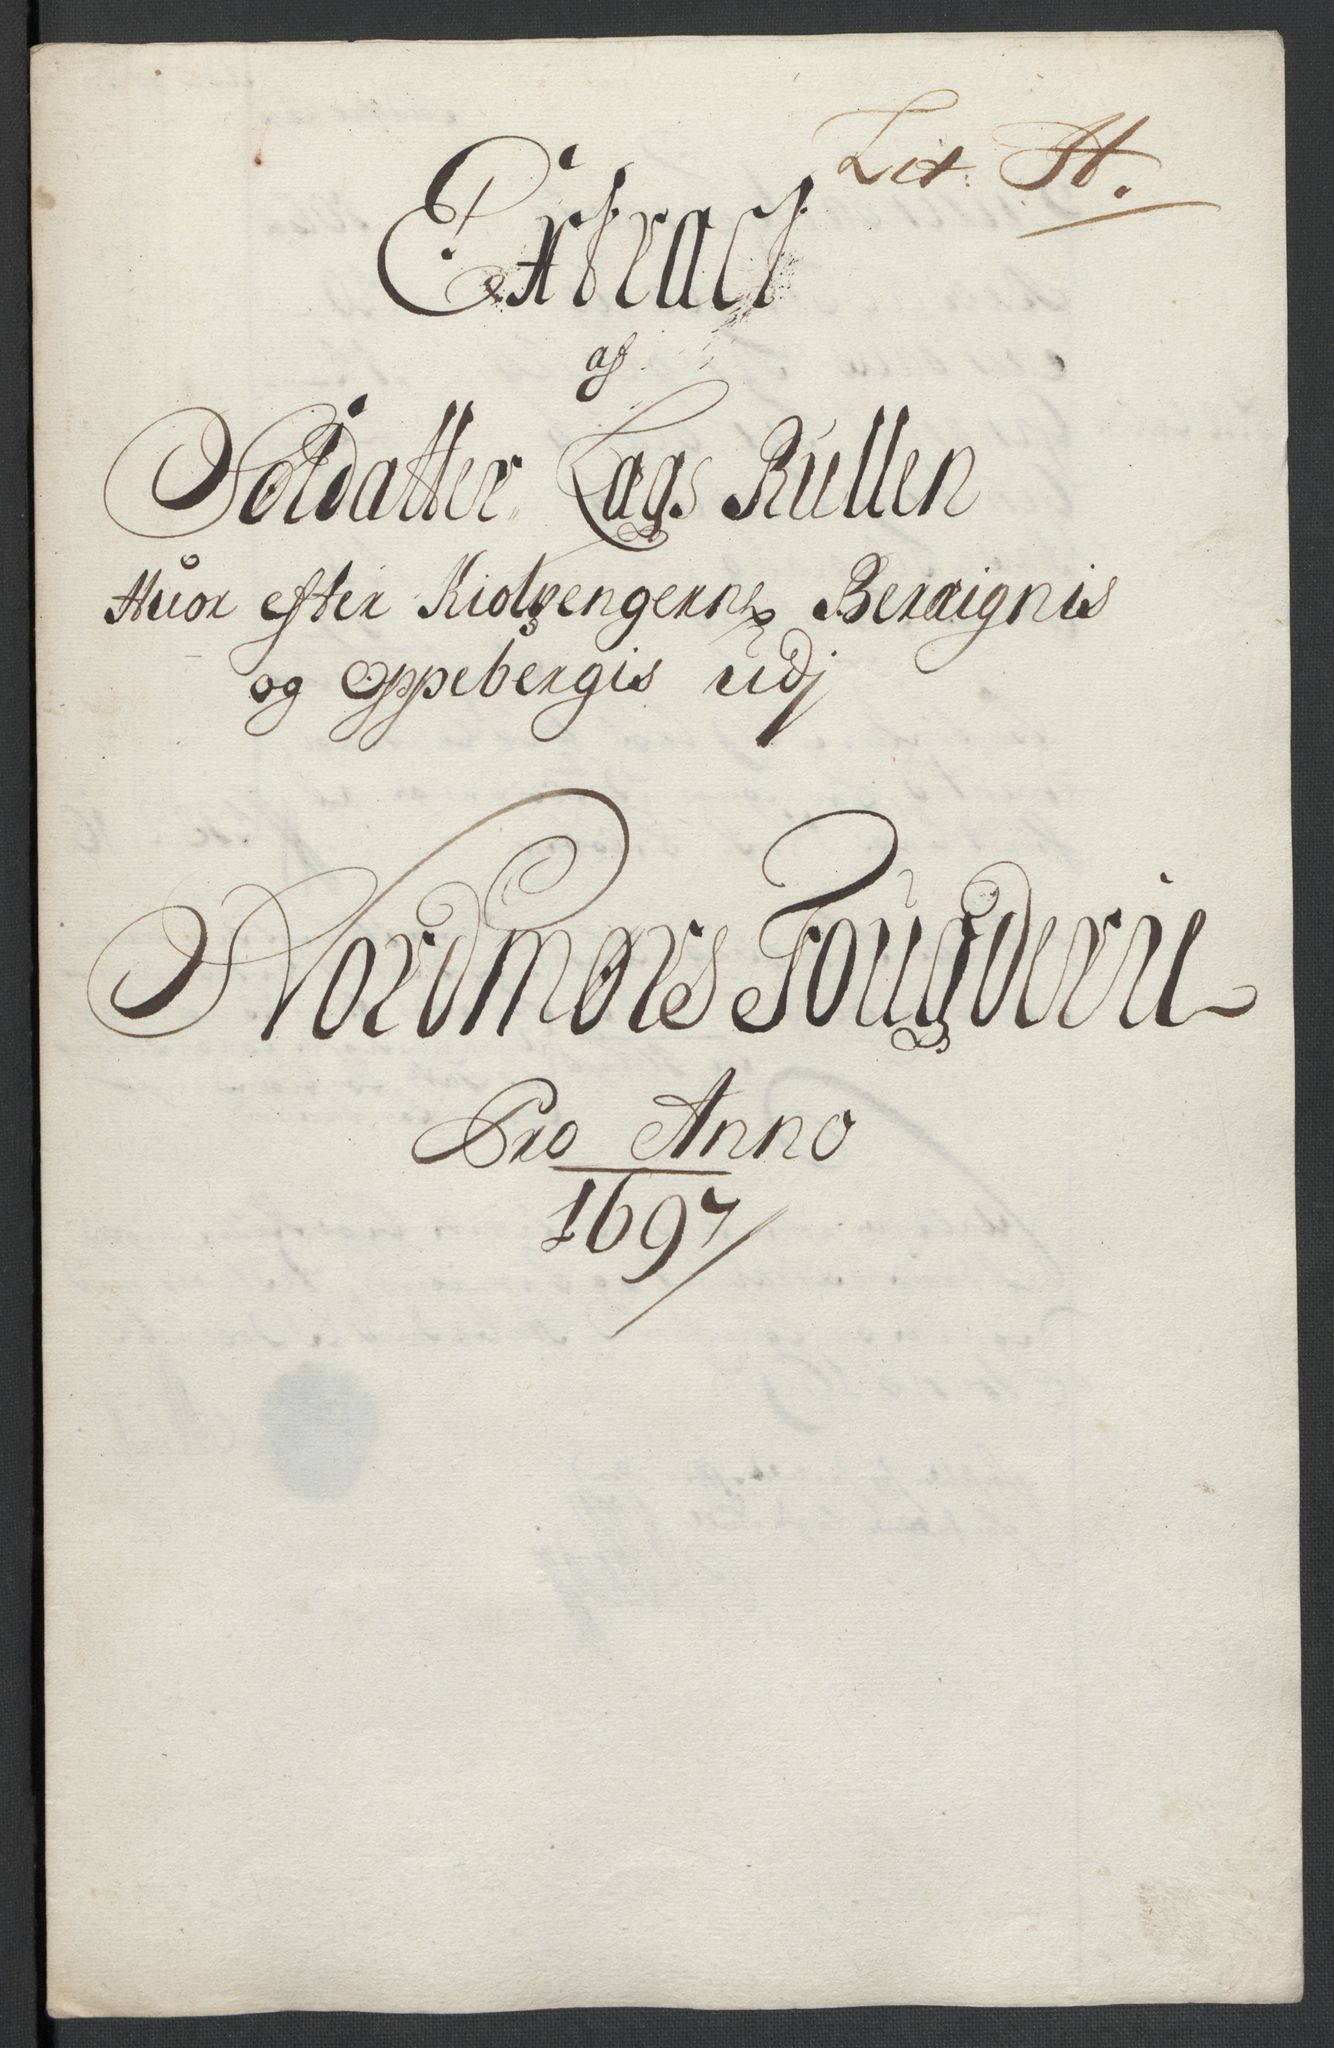 Lit: H.
Extract
af
Soldatter Lægs Rullen
Huor efter Kiolpengerne Beraignis
og oppebergis udj
Nordmørs Fougderie
Pro Anno
1697